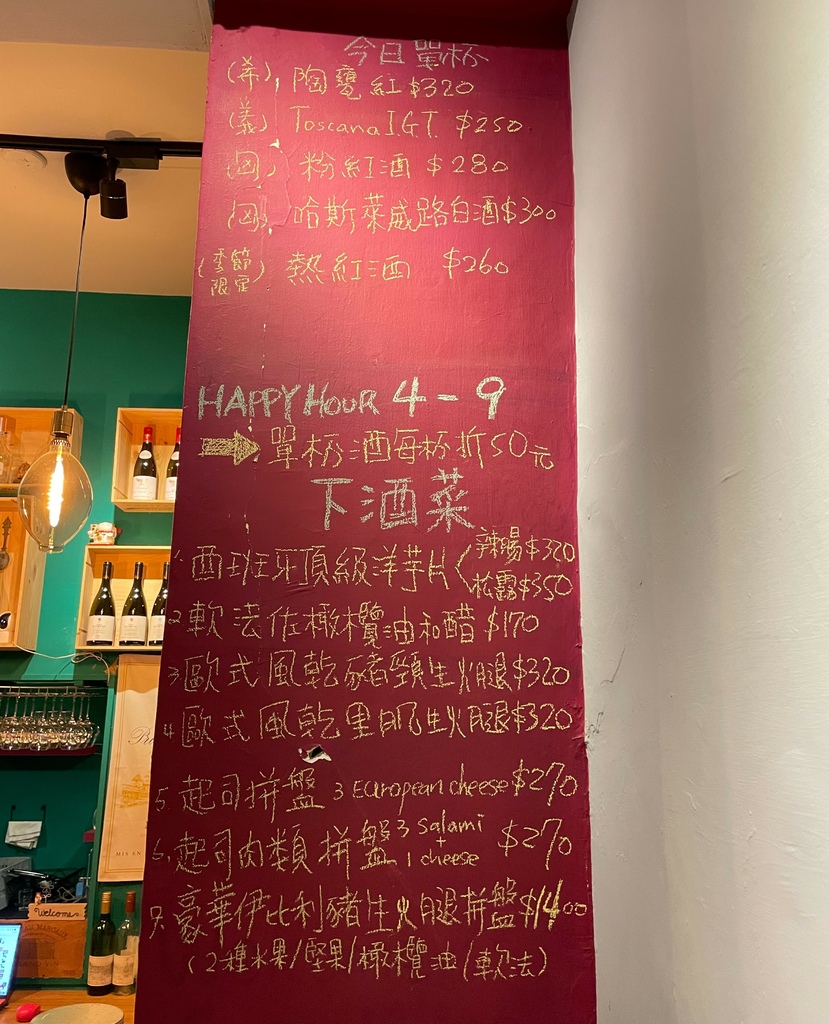 今日單杯
(希) 陶甕紅 $320
(義) Toscana I.G.T. $250
(匈) 粉紅酒 $280
(匈) 哈斯萊威路白酒 $300
(季節限定) 熱紅酒 $260
HAPPY HOUR 4-9
單杯酒每杯折50元
下酒菜
1. 西班牙頂級洋芋片 辣腸 $320
松露 $350
2. 軟法佐橄欖油和醋 $170
3. 歐式風乾豬頸生火腿 $320
4. 歐式風乾里肌生火腿 $320
5. 起司拼盤 3 European cheese $270
6. 起司肉類拼盤 3 Salami + 1 cheese $270
7. 豪華伊比利豬生火腿拼盤 $1400
(2種水果/堅果/橄欖油/軟法)
Welcome